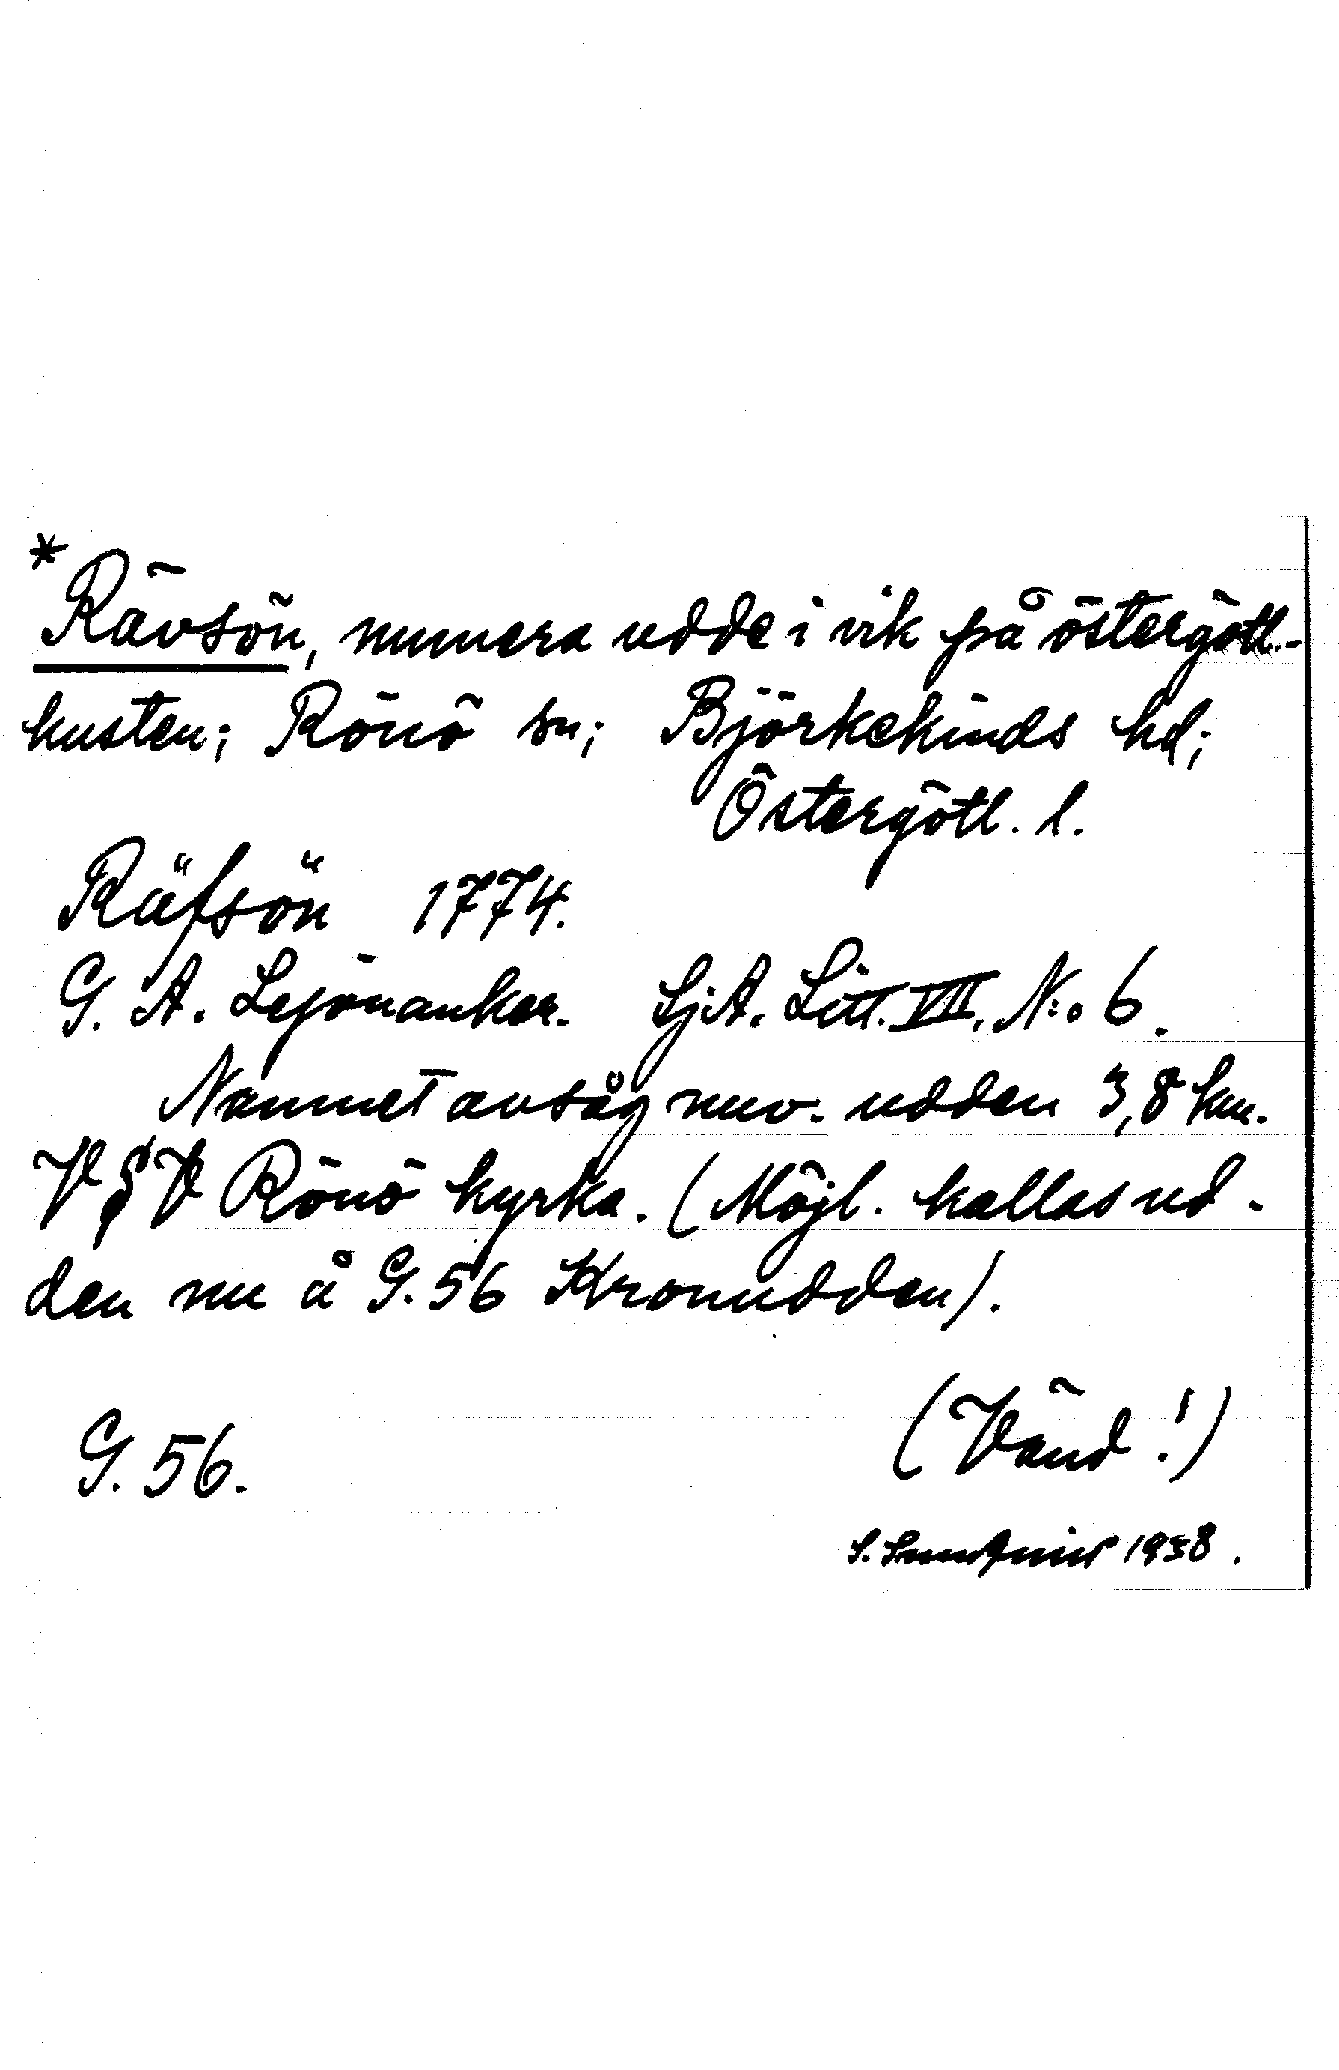 *
Rävsön, numera udde i vik på östergötl.-
kusten; Rönö sn; Björkekinds hd;
Östergötl. l.
Räfsön 1774.
G. A. Lejonanker. SjA. Litt. VII. N:o 6.
Namnet avsåg nuv. udden 3,8 km.
V § V Rönö kyrka. (Möjl. kallas ud-
den nu å G. 56 Kronudden).
(Vänd!)
G. 56.
1938.